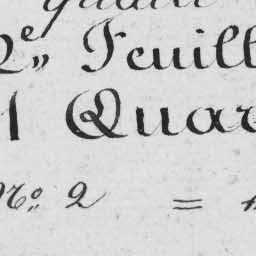 2e,, Feuill
1 Quar
No. 2 =